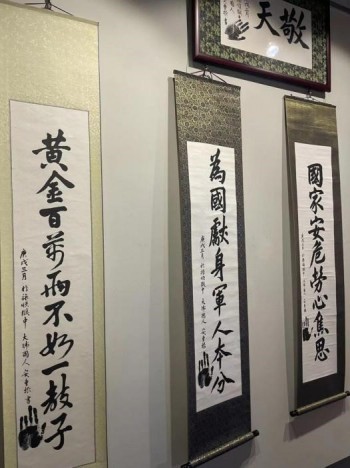 敬天
國家安危勞心焦思
為國獻身軍人本分
庚戌三月 於旅順獄中 大韓國人 安重根
黃金百萬兩不如一敎子
庚戌三月 於旅順獄中 大韓國人 安重根 書